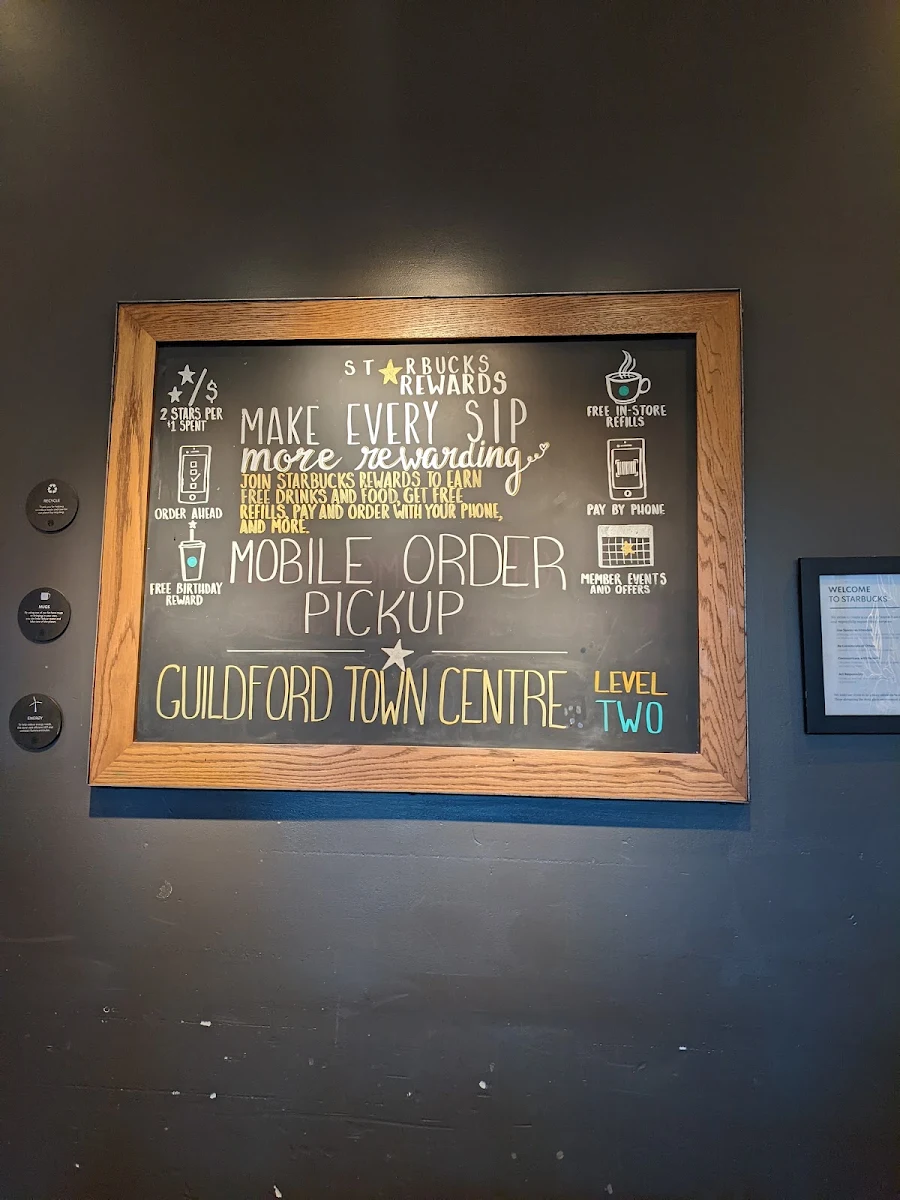 ST★RBUCKS
REWARDS
MAKE EVERY SIP
more rewarding
JOIN STARBUCKS REWARDS TO EARN
FREE DRINKS AND FOOD, GET FREE
REFILLS, PAY AND ORDER WITH YOUR PHONE,
AND MORE.
MOBILE ORDER
PICKUP
GUILDFORD TOWN CENTRE
LEVEL
TWO
/$
2 STARS PER
$1 SPENT
ORDER AHEAD
FREE BIRTHDAY
REWARD
FREE IN-STORE
REFILLS
PAY BY PHONE
MEMBER EVENTS
AND OFFERS
RECYCLE
MUGS
ENERGY
WELCOME
TO STARBUCKS